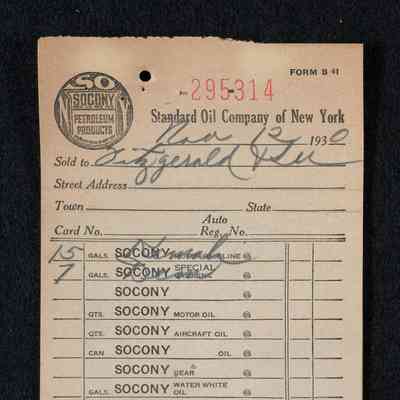 FORM B 41
SO
SOCONY
PETROLEUM
PRODUCTS
No 295314
Standard Oil Company of New York
Nov 12 1930
Sold to Fitzgerald
Street Address
Town State
Card No. Auto Reg. No.
15 GALS. SOCONY GASOLINE @
7 GALS. SOCONY SPECIAL GASOLINE @
SOCONY
QTS. SOCONY MOTOR OIL @
QTS. SOCONY AIRCRAFT OIL @
CAN SOCONY OIL @
SOCONY GEAR @
GALS. SOCONY WATER WHITE OIL @